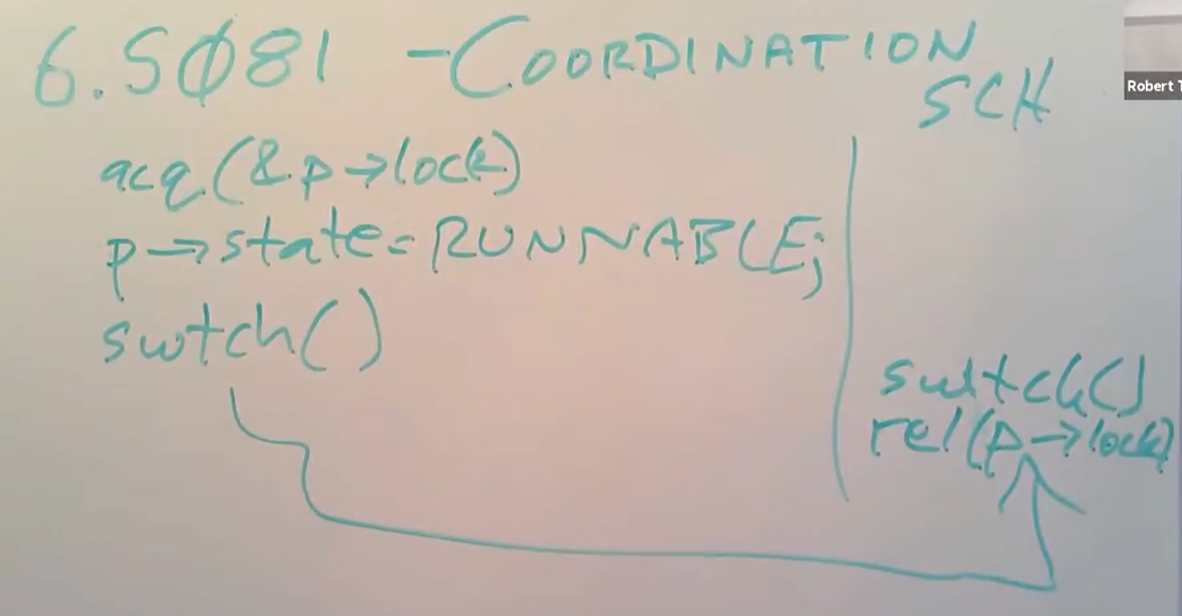 6.SØ81 - COORDINATION
SCH
acq(&p→lock)
p→state=RUNNABLE;
swtch()
swtch()
rel(p→lock)
Robert T